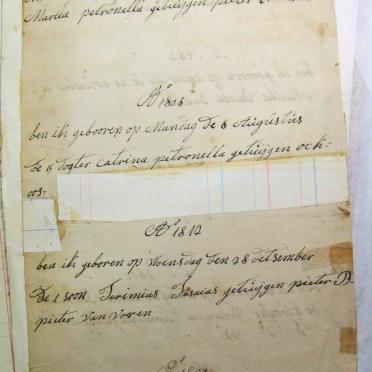 Maria petronella getuijgen pieter
Aº 1808
ben ik gebooren op Mandag de 8 Augustus
de 5 dogter catrina petronella getuijgen ock:
oos:
Aº 1812
ben ik geboren op Woensdag den 28 detsember
De 1 soon Jerimias Jesaias getuijgen pieter D
pieter van voren